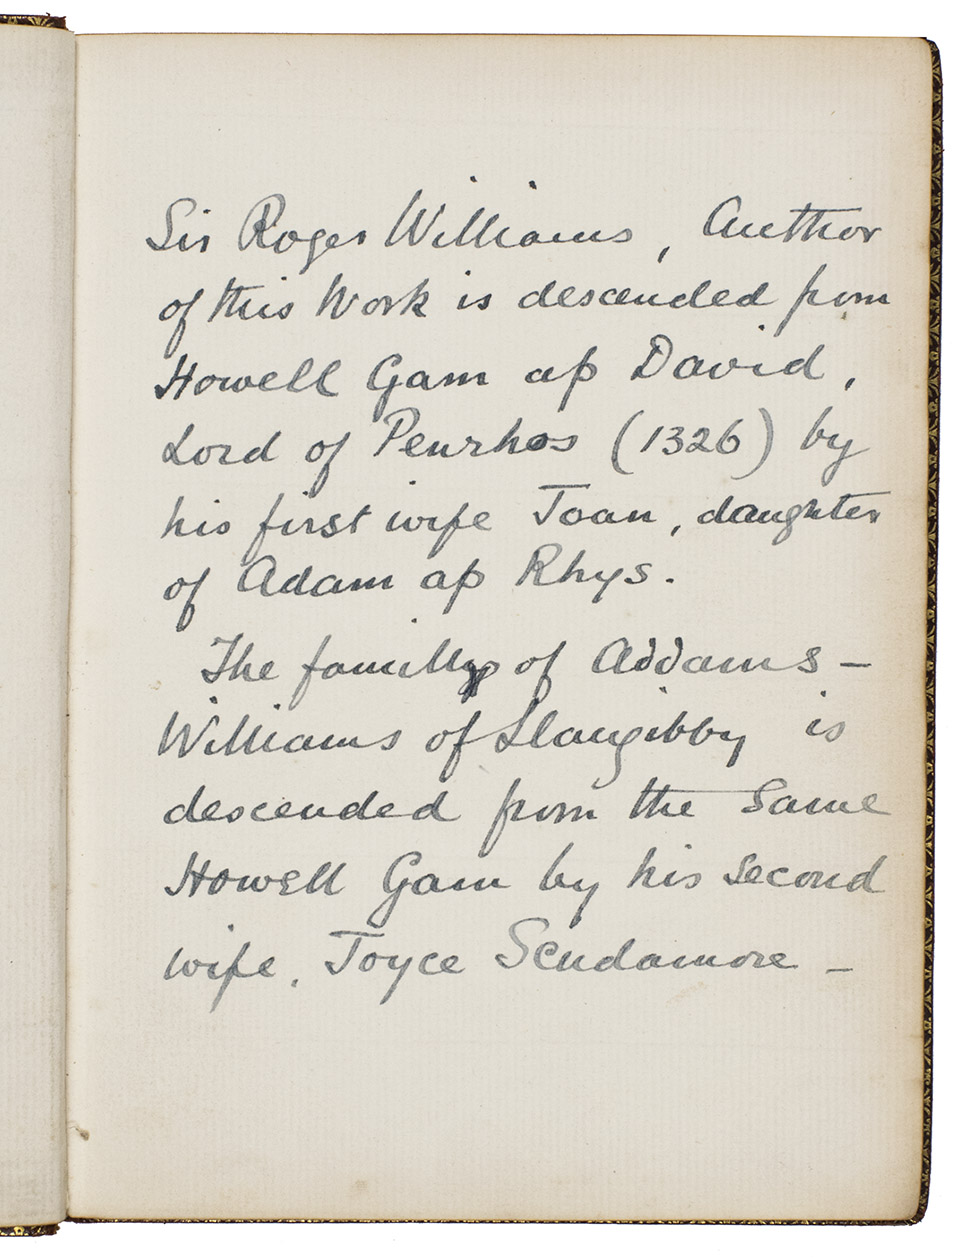 Sir Roger Williams, Author
of this Work is descended from
Howell Gam ap David,
Lord of Penrhos (1326) by
his first wife Joan, daughter
of Adam ap Rhys.
The family of Addams-
Williams of Llangibby is
descended from the Same
Howell Gam by his second
wife, Joyce Scudamore -